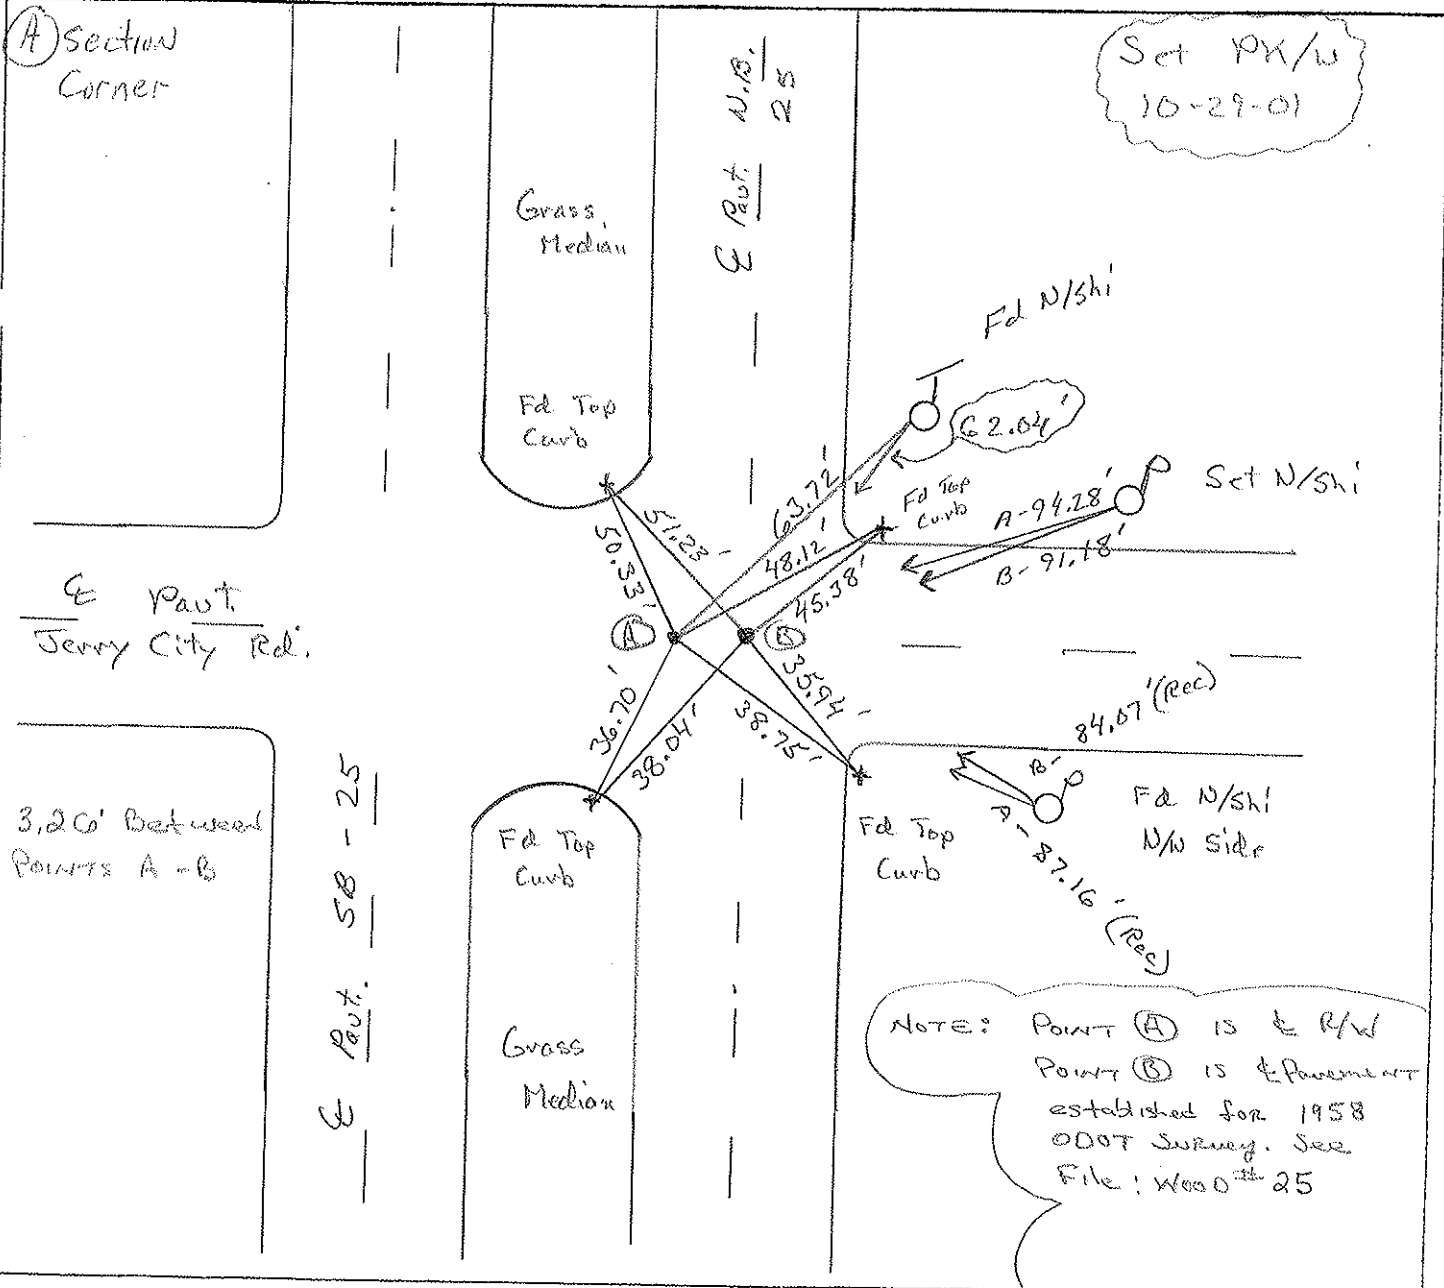 (A) Section
Corner
Set PK/W
10-29-01
℄ Pavt. N.B.
25
Grass
Median
Fd N/Shi
Fd Top
Curb
62.04'
63.72'
Fd Top
Curb
Set N/Shi
A-94.28'
B-91.18'
51.23'
50.33'
48.12'
45.38'
℄ Pavt.
Jerry City Rd.
(A)
(B)
36.70'
38.04'
38.75'
35.94'
B-84.07' (Rec)
A-87.16' (Rec)
Fd N/Shi
N/W Side
3.26' Between
POINTS A-B
℄ Pavt. SB-25
Fd Top
Curb
Fd Top
Curb
Grass
Median
NOTE: POINT (A) IS ℄ R/W
POINT (B) IS ℄ PAVEMENT
established for 1958
ODOT Survey. See
File: WOOD #25